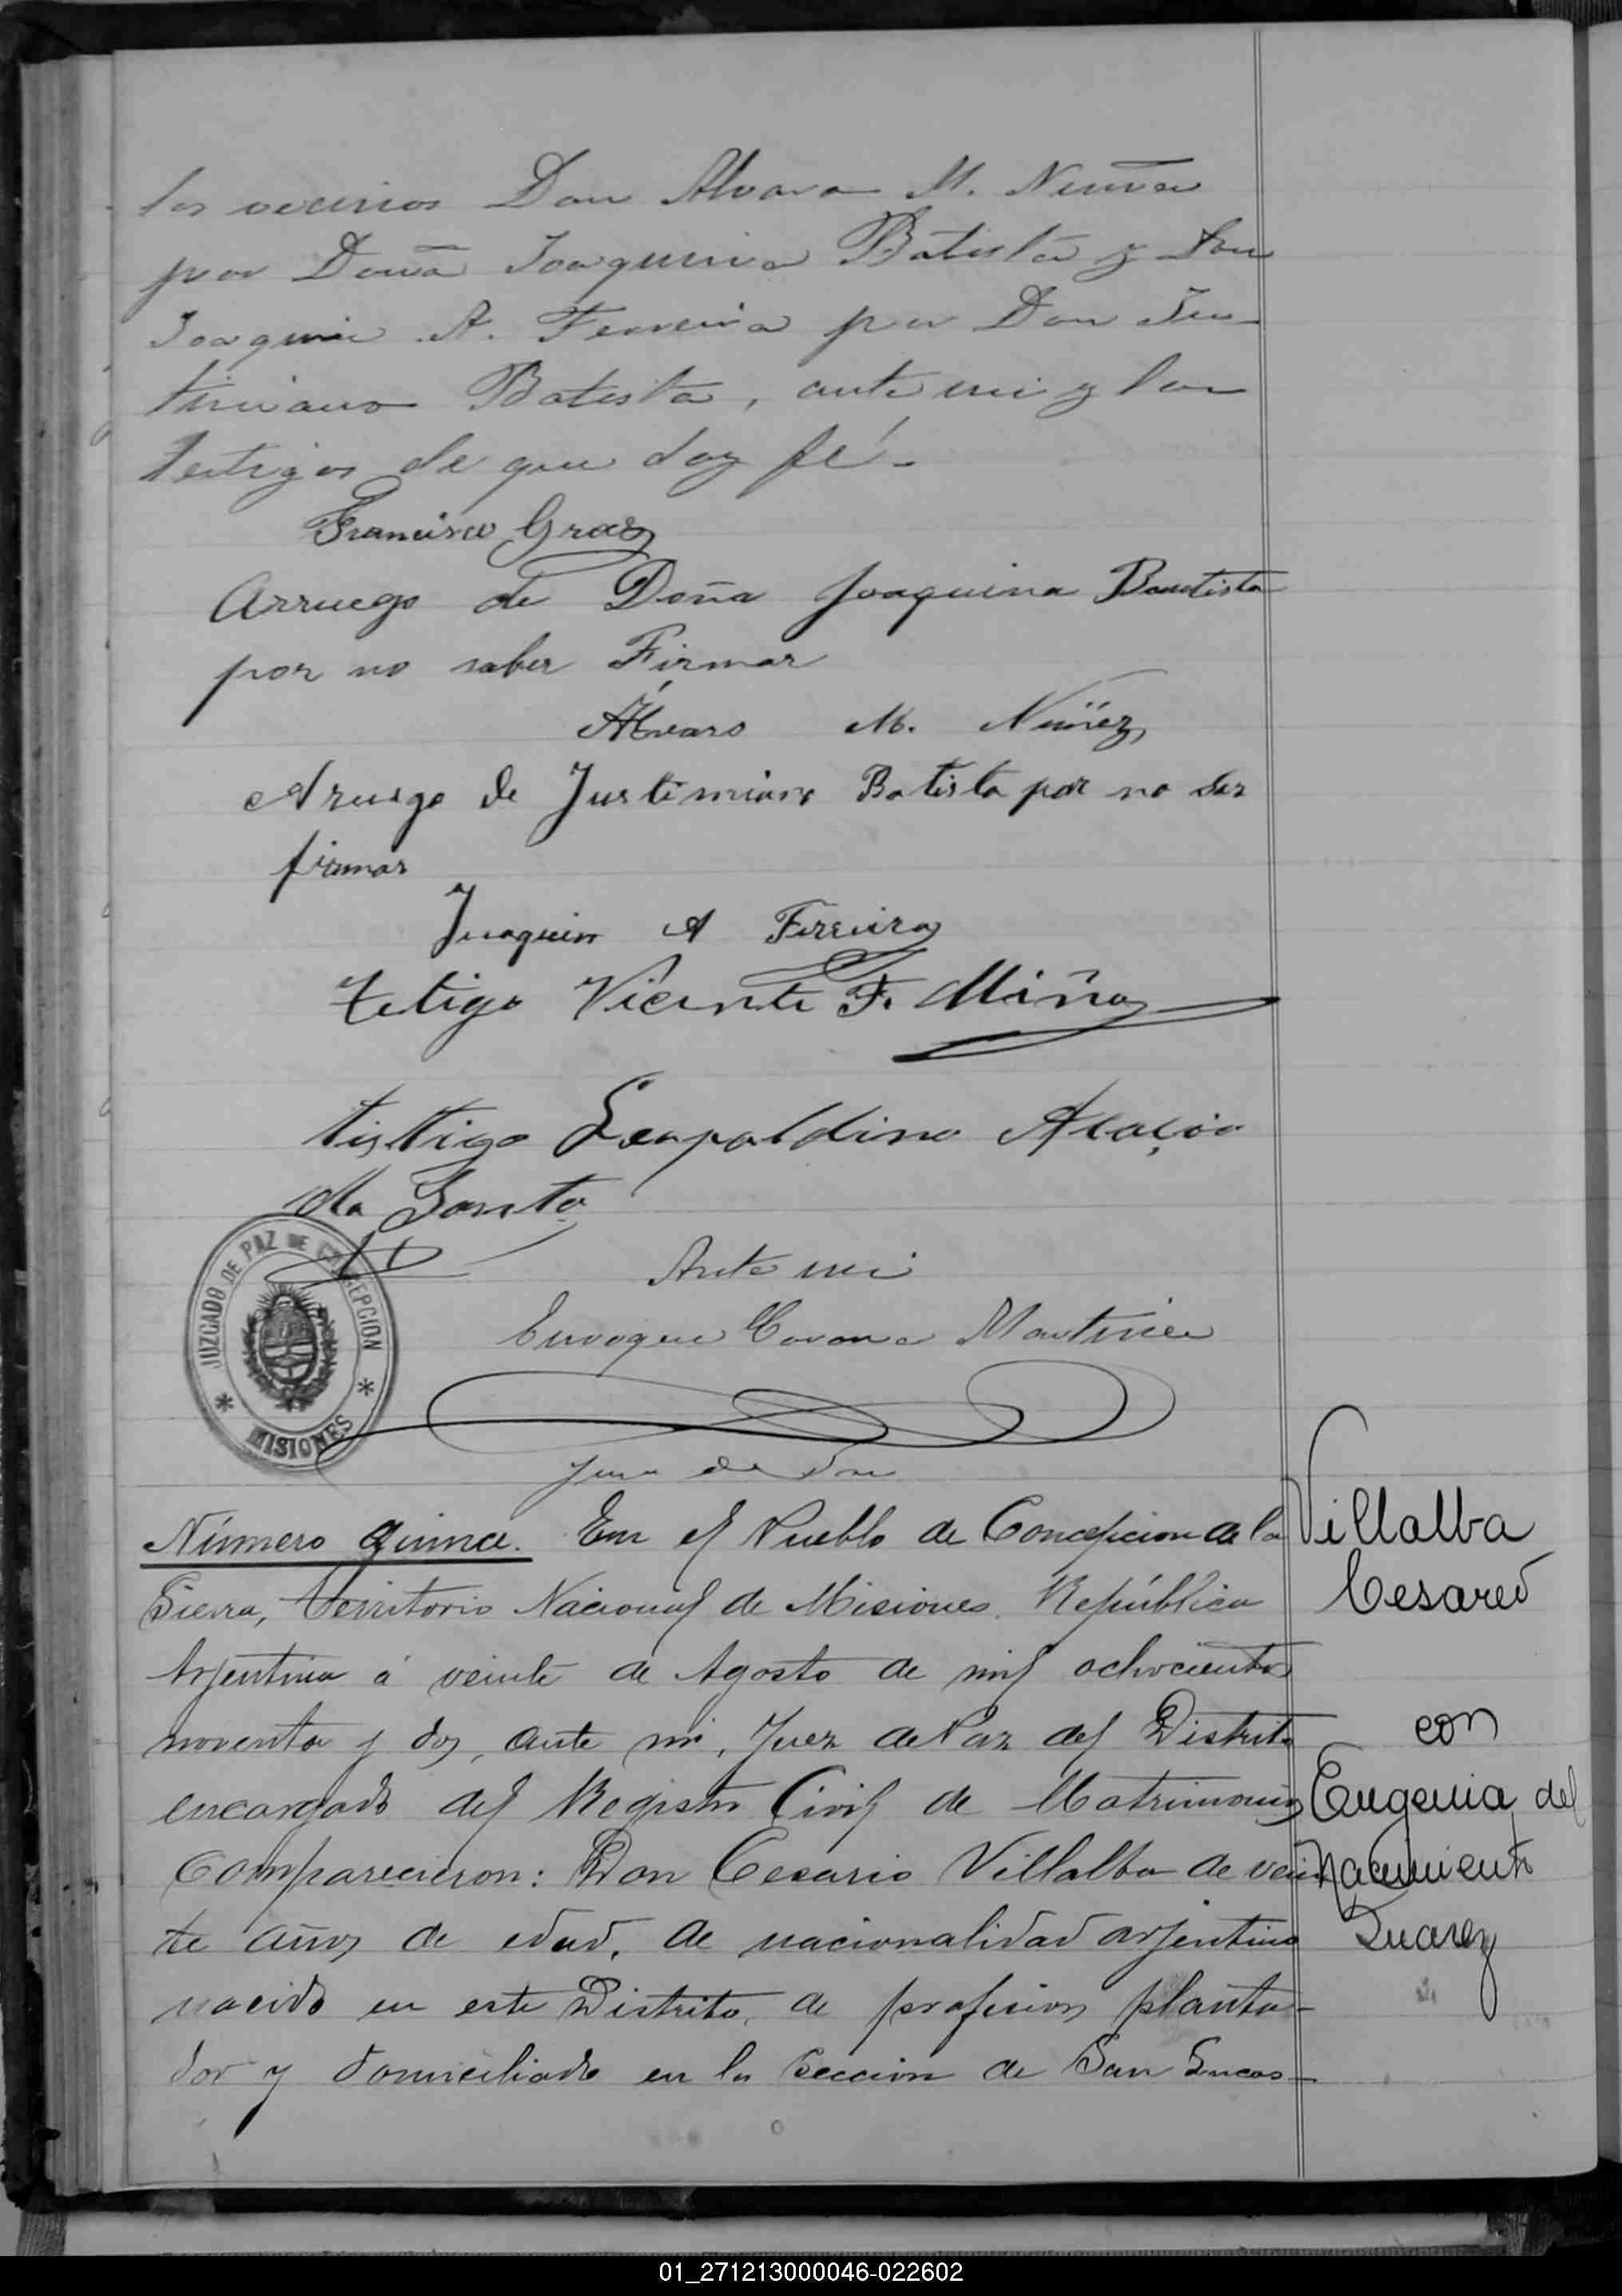 los vecinos Don Alvaro M. Nuñez
por Doña Joaquina Batista y Don
Joaquin A. Ferreira por Don Jus-
tiniano Batista, ante mi y los
testigos de que doy fé.-
Francisco Gras
Arruego de Doña Joaquina Bautista
por no saber Firmar
Álvaro M. Nuñez
Aruego de Justiniano Batista por no ser
firmar
Juaquin A Ferreira
Tetigo Vicente F. Miño
tistigo Leopoldino Acaçio
da Santo
JUZGADO DE PAZ DE CONCEPCION
* MISIONES *
Ante mi
Enrroque Corona Martinez
Juez de Paz
Número Quince. En el Pueblo de Concepcion de la
Sierra, Territorio Nacional de Misiones, República
Arjentina á veinte de Agosto de mil ochocientos
noventa y dos, ante mi, Juez de Paz del Distrito
encargado del Registro Civil de Matrimonios
Comparecieron: Don Cesario Villalba de vein
te años de edad, de nacionalidad arjentino
nacido en este Distrito, de profesion planta-
dor y domiciliado en la Seccion de San Lucas-
Villalba
Cesareo
con
Eugenia del
Nacimiento
Suarez
01_271213000046-022602